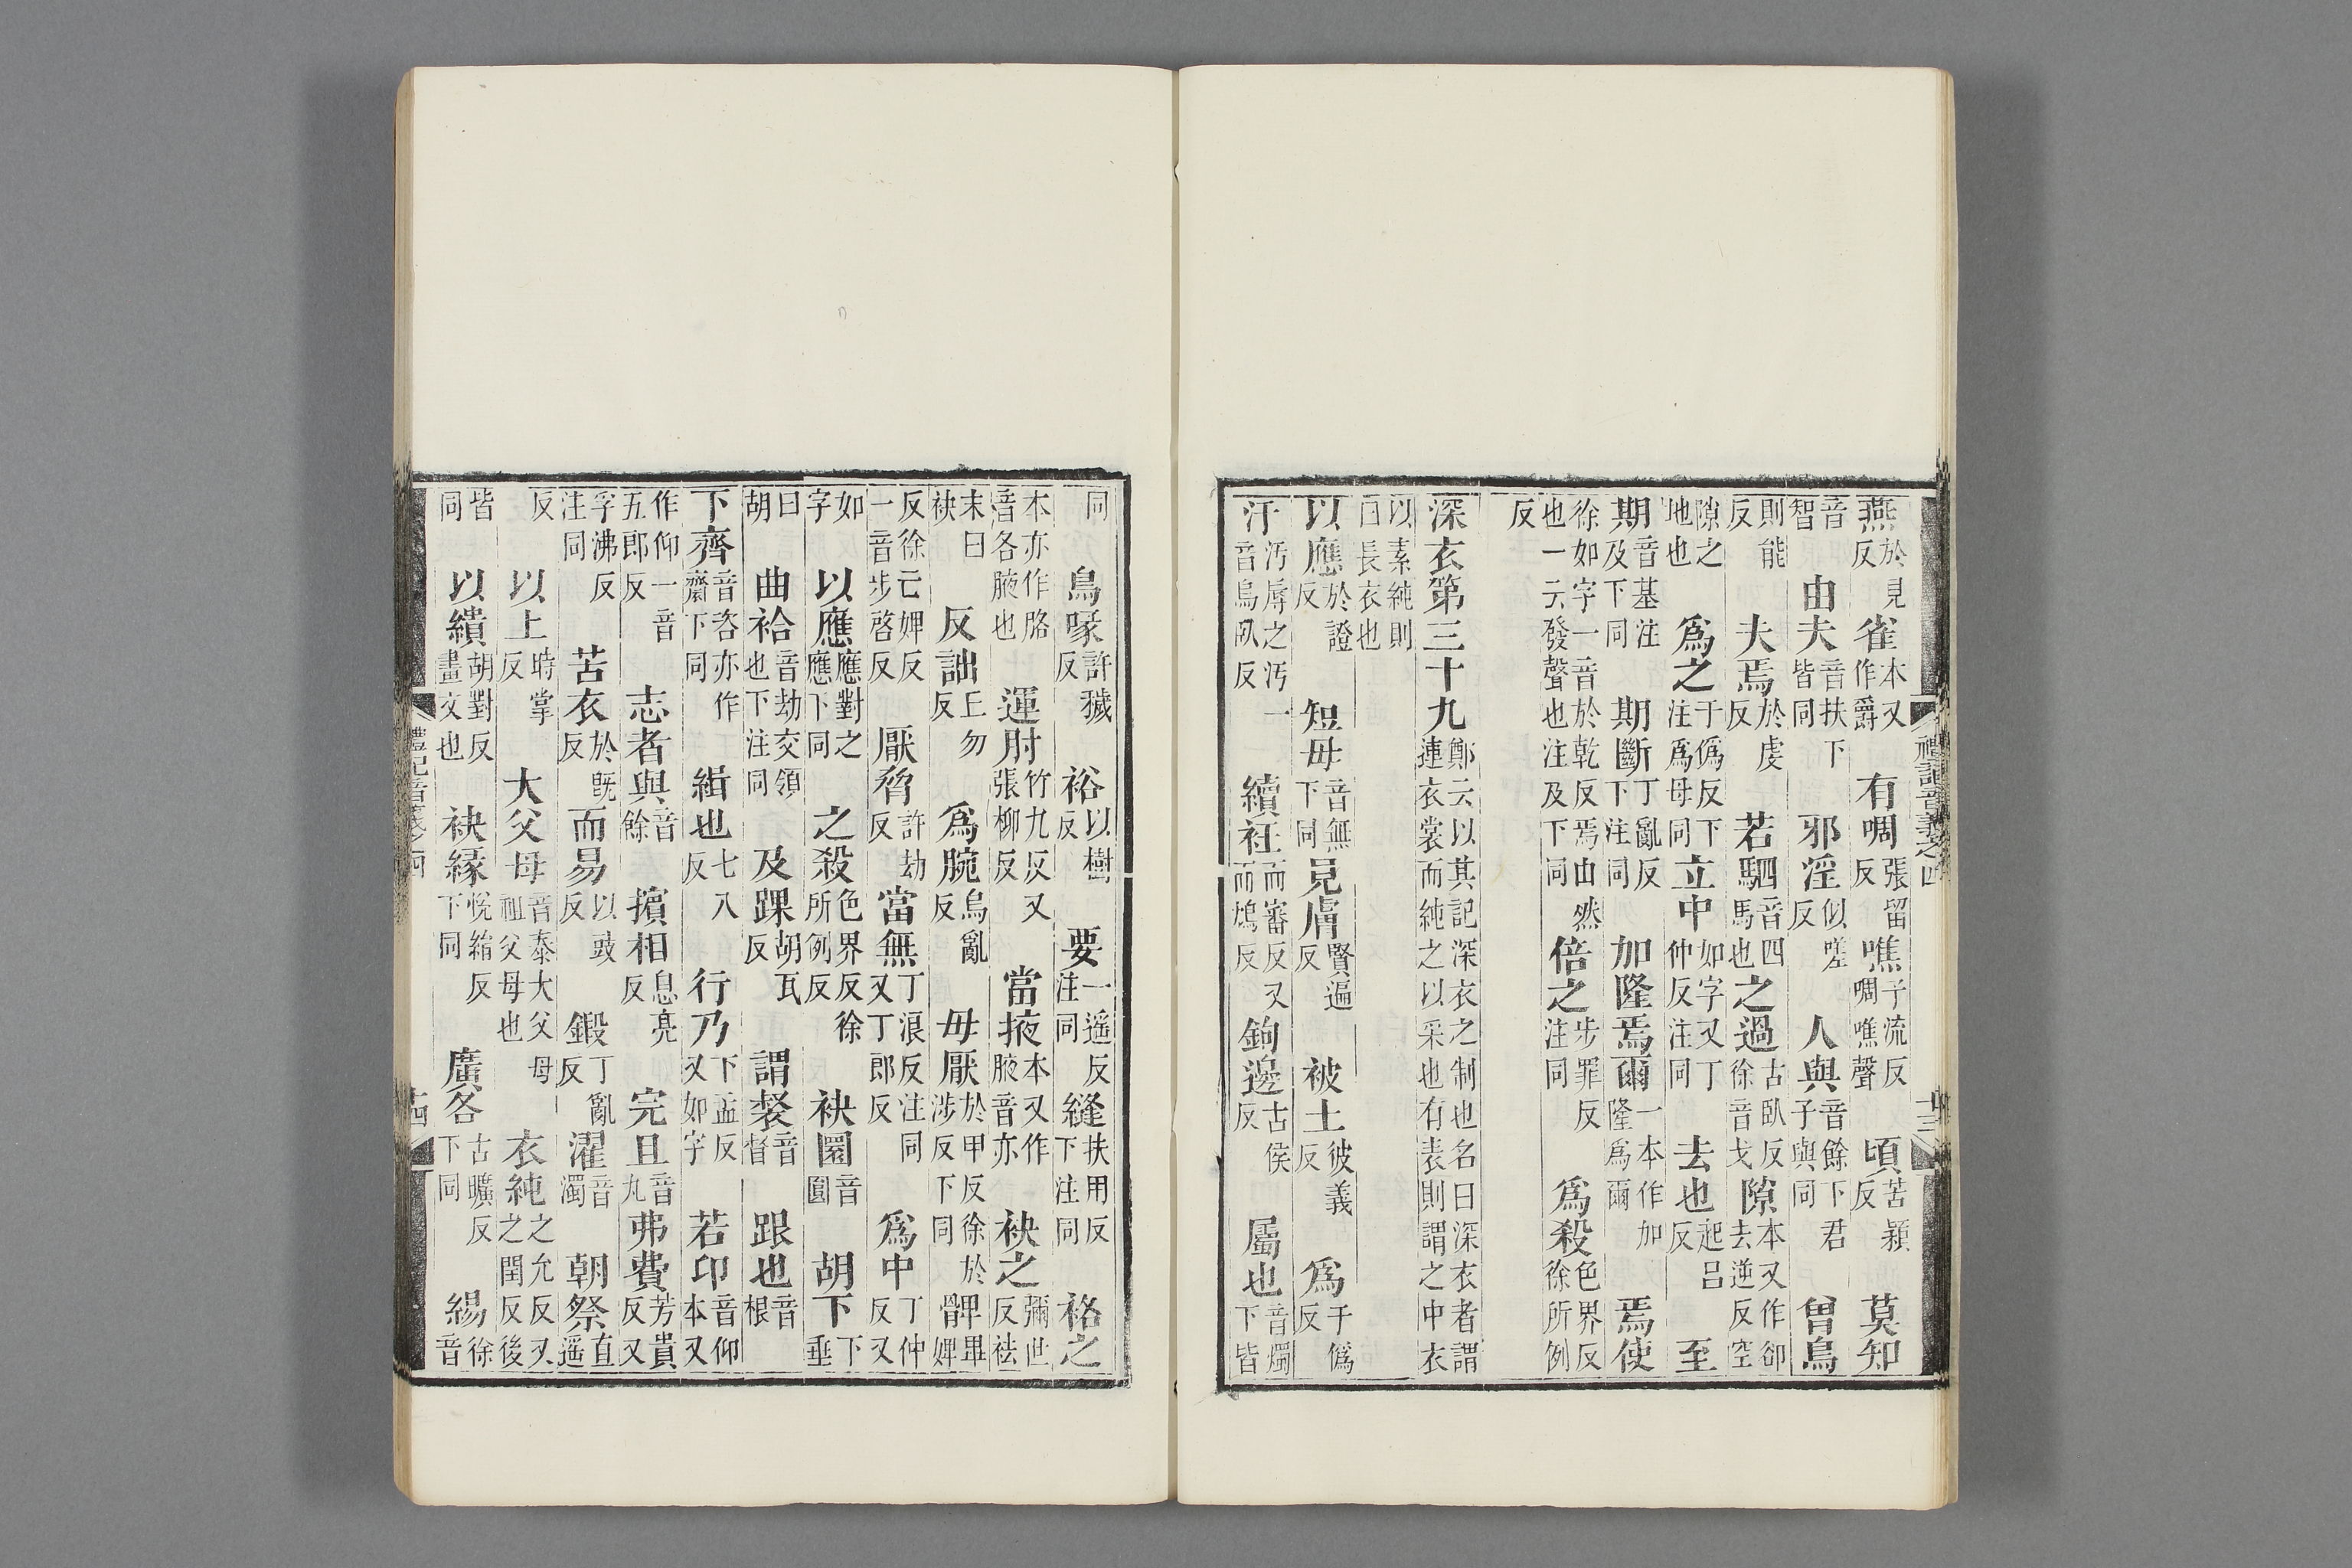 燕於見反雀本又作爵有啁張留反噍子流反啁噍聲頃苦穎反莫知
音智由夫音扶下皆同邪淫似嗟反人與音餘下君子與同曾鳥
則能反夫焉於虔反若駟音四馬也之過古臥反徐音戈隙本又作郤去逆反空
隙之地也爲之于僞反下注爲母同立中如字又丁仲反注同去也起呂反至
期音基注及下同期斷丁亂反下注同加隆焉爾一本作加隆爲爾焉使
徐如字一音於乾反焉由然也一云發聲也注及下同倍之步罪反注同爲殺色界反徐所例
反
深衣第三十九鄭云以其記深衣之制也名曰深衣者謂連衣裳而純之以采也有表則謂之中衣
以素純則曰長衣也
以應於證反短毋音無下同見膚賢遍反被土彼義反爲于僞反
汙汚辱之汚一音烏臥反續衽而審反又而鴆反鉤邊古侯反屬也音燭下皆
禮記音義之四
十三
同鳥喙許穢反裕以樹反要一遙反注同縫扶用反下注同袼之
本亦作胳音各腋也運肘竹九反又張柳反當掖本又作腋音亦袂之彌世反袪
末曰袂反詘丘勿反爲腕烏亂反毋厭於甲反徐於涉反下同髀畢婢
反徐亡婢反一音步啓反厭脅許劫反當無丁浪反注同又丁郎反爲中丁仲反又
如字以應應對之應下同之殺色界反徐所例反袂圜音圓胡下下垂
曰胡曲袷音劫交領也下注同及踝胡瓦反謂裻音督跟也音根
下齊音咨亦作齋下同緝也七入反行乃下孟反又如字若卬音仰本又
作仰一音五郎反志者與音餘擯相息亮反完且音丸弗費芳貴反又
孚沸反注同苦衣於旣反而易以豉反鍛丁亂反濯音濁朝祭直遙
反以上時掌反大父母音泰大父母祖父母也衣純之允反又之閏反後
皆同以繢胡對反畫文也袂緣悅絹反下同廣各古曠反下同緆徐音
禮記音義之四
十四